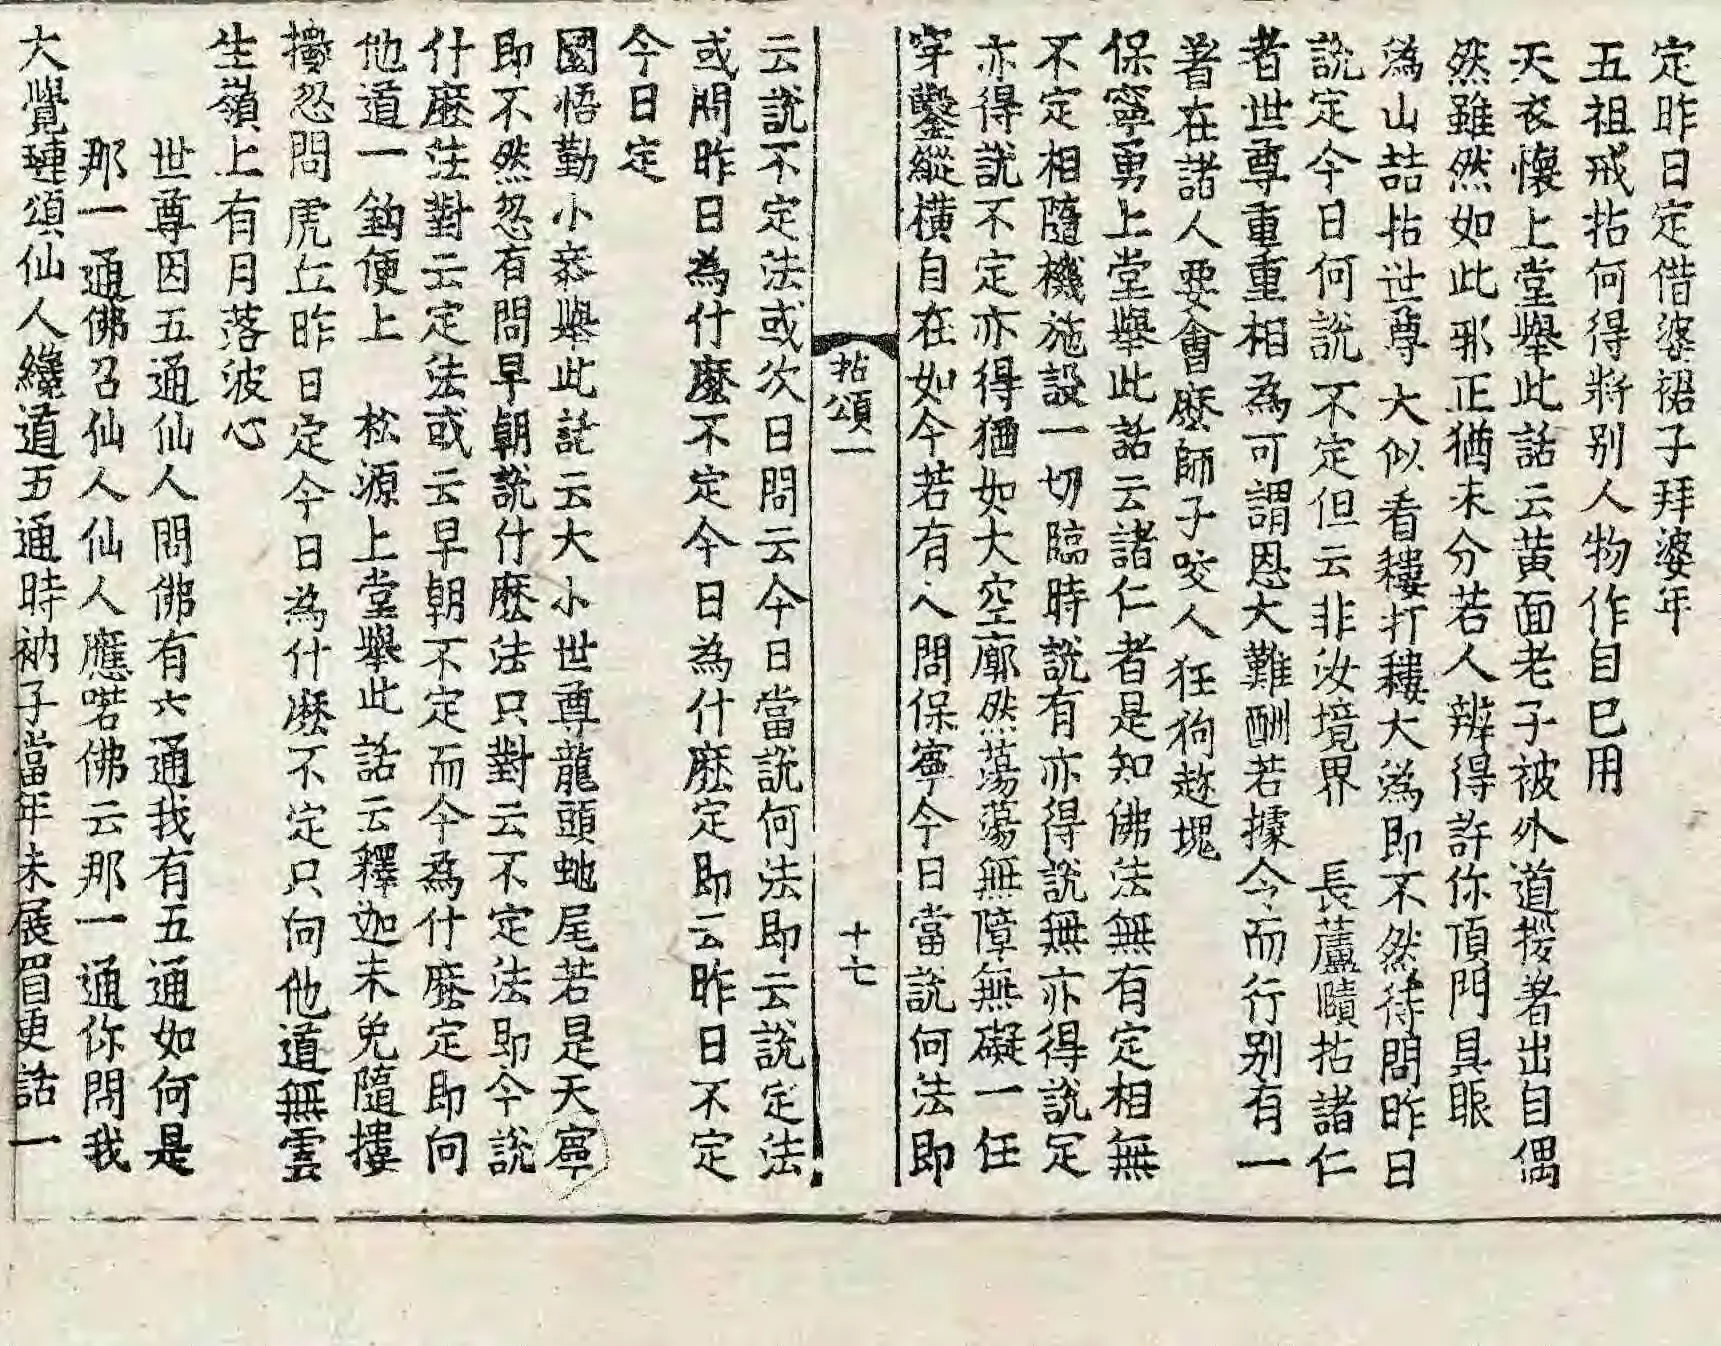 定昨日定借婆裙子拜婆年
五祖戒拈何得將别人物作自巳用
天衣懷上堂舉此話云黄面老子被外道拶着出自偶
然雖然如此邪正猶未分若人辨得許你頂門具眼
溈山喆拈世尊大似看穅打穅大溈即不然待問昨日
說定今日何說不定但云非汝境界　長蘆賾拈諸仁
者世尊重重相為可謂恩大難酬若據令而行别有一
着在諸人要會麽師子咬人狂狗趂塊
保寧勇上堂舉此話云諸仁者是知佛法無有定相無
不定相隨機施設一切臨時說有亦得說無亦得說定
亦得說不定亦得猶如大空廓然蕩蕩無障無礙一任
穿鑿縱橫自在如今若有人問保寧今日當說何法即
拈頌一　十七
云說不定法或次日問云今日當說何法即云說定法
或問昨日為什麽不定今日為什麽定即云昨日不定
今日定
圜悟勤小叅舉此話云大小世尊龍頭虵尾若是天寧
即不然忽有問早朝說什麽法只對云不定法即今說
什麽法對云定法或云早朝不定而今為什麽定即向
他道一鈎便上　松源上堂舉此話云釋迦未免隨摟
擻忽問虎丘昨日定今日為什麽不定只向他道無雲
生嶺上有月落波心
世尊因五通仙人問佛有六通我有五通如何是
那一通佛召仙人仙人應喏佛云那一通你問我
大覺璉頌仙人纔道五通時衲子當年未展眉更話一